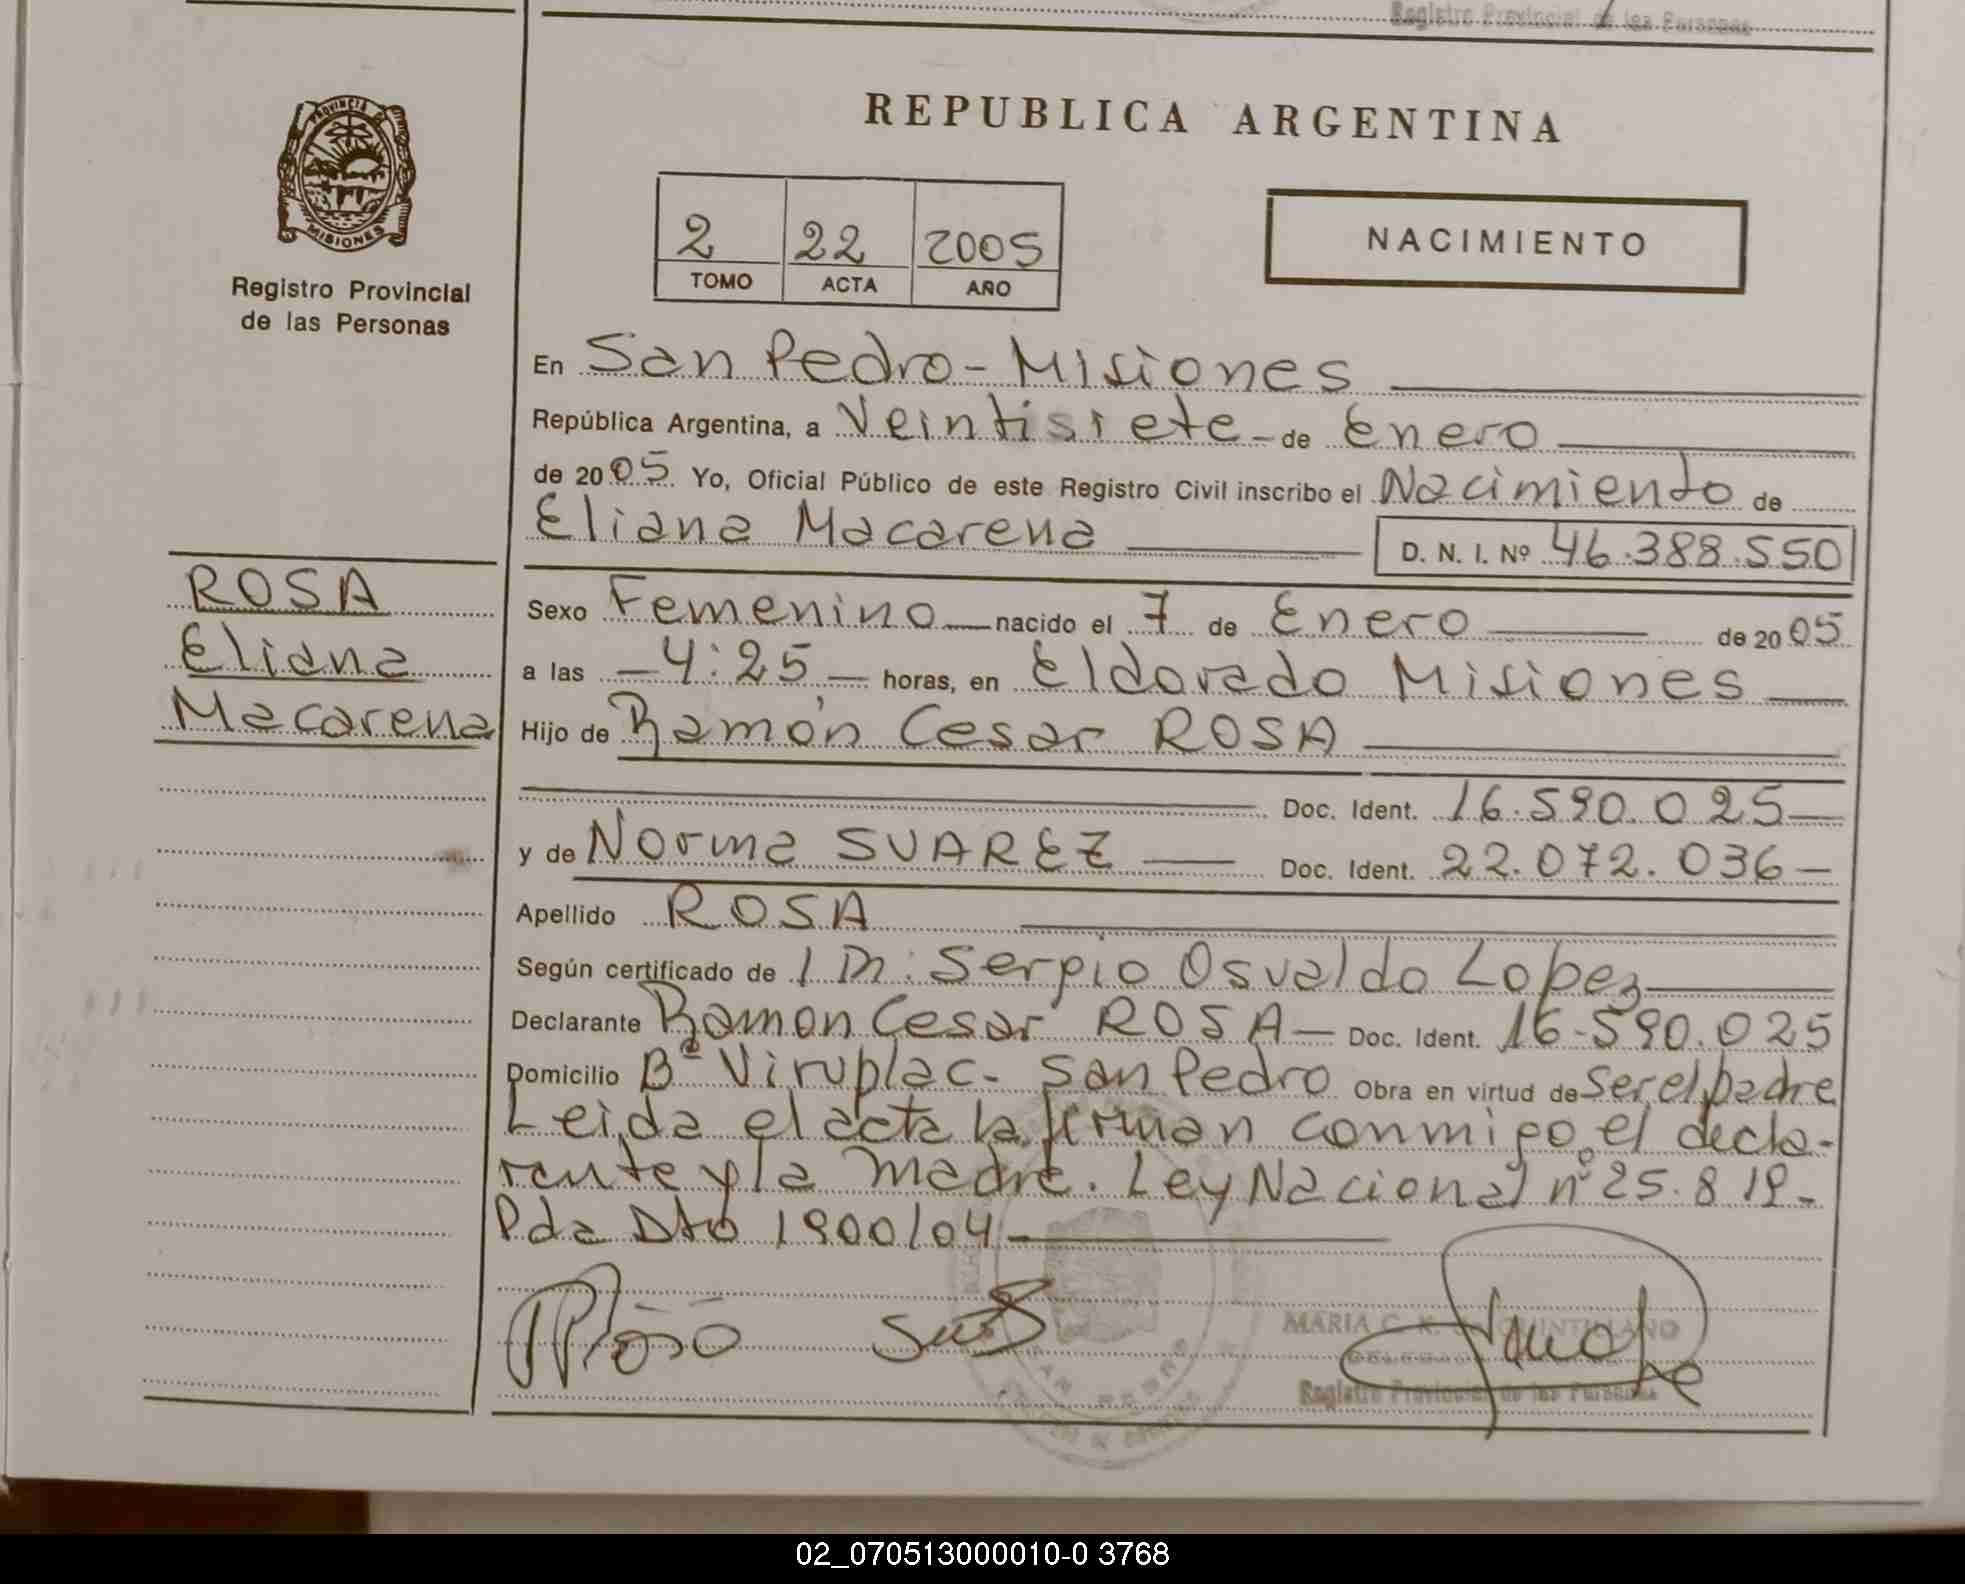 Registro Provincial de las Personas
REPUBLICA ARGENTINA
PROVINCIA DE
MISIONES
Registro Provincial
de las Personas
2 22 2005
TOMO ACTA AÑO
NACIMIENTO
En San Pedro - Misiones
República Argentina, a Veintisiete - de Enero
de 2005 Yo, Oficial Público de este Registro Civil inscribo el Nacimiento de
Eliana Macarena D. N. I. Nº 46.388.550
ROSA
Eliana
Macarena
Sexo Femenino nacido el 7 de Enero de 2005
a las - 4:25 - horas, en Eldorado Misiones
Hijo de Ramón Cesar ROSA
Doc. Ident. 16.590.025
y de Norma SUAREZ Doc. Ident. 22.072.036
Apellido ROSA
Según certificado de Sergio Osvaldo Lopez
Declarante Ramon Cesar ROSA - Doc. Ident. 16.590.025
Domicilio Bº Viruplac - San Pedro Obra en virtud de Ser el padre
Leida el acta la firman conmigo, el decla-
rante y la madre. Ley Nacional nº 25.819 -
Pda Dto 1900/04
MARIA C. K. de QUINTILLANO
Registro Provincial de las Personas
SAN PEDRO
02_070513000010-0 3768